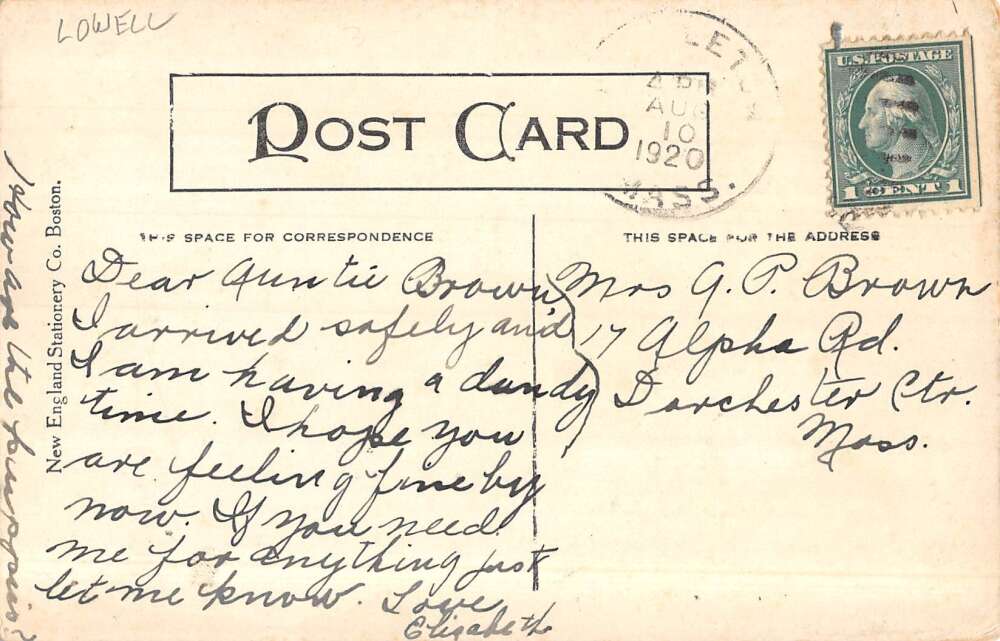 LOWELL
POST CARD
AUG
10
1920
MASS.
U.S. POSTAGE
1 CENT 1
THIS SPACE FOR CORRESPONDENCE
THIS SPACE FOR THE ADDRESS
Dear Auntie Brown
I arrived safely and
I am having a dandy
time. I hope you
are feeling fine by
now. If you need
me for anything just
let me know. Love
Elizabeth
Mrs G. P. Brown
17 Alpha Rd.
Dorchester Ctr.
Mass.
New England Stationery Co. Boston.
How are the